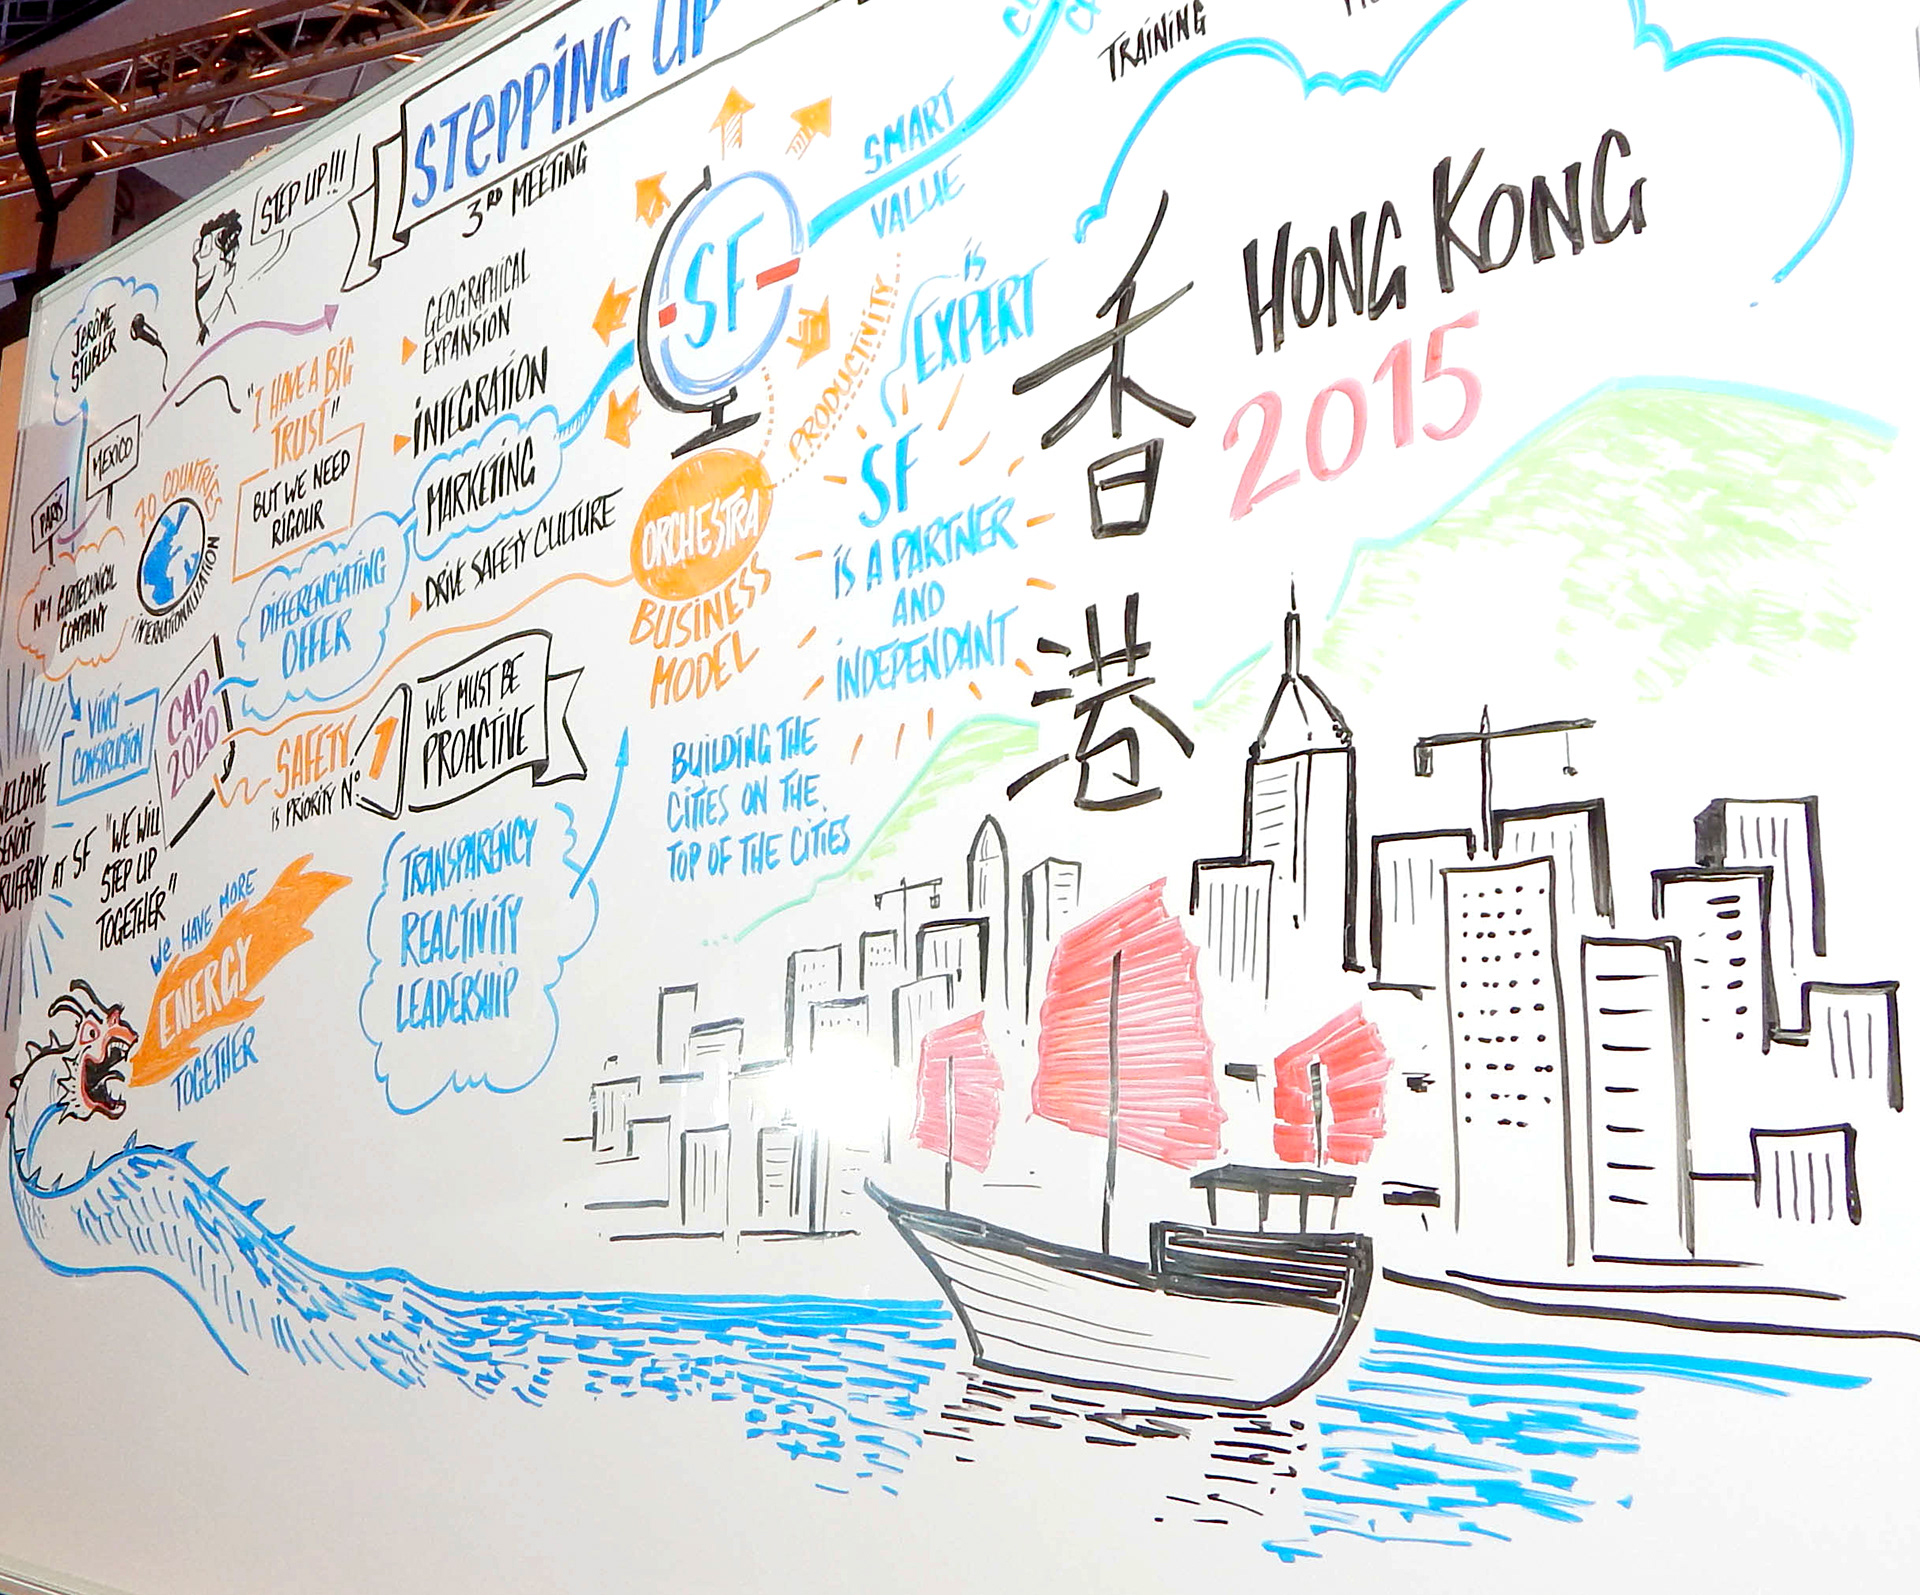 STEPPING UP
3RD MEETING
STEP UP!!!
JERÔME
STUBLER
MEXICO
PARIS
N°1 GEOTECHNICAL
COMPANY
70 COUNTRIES
INTERNATIONALIZATION
"I HAVE A BIG
TRUST"
BUT WE NEED
RIGOUR
GEOGRAPHICAL
EXPANSION
INTEGRATION
MARKETING
DRIVE SAFETY CULTURE
DIFFERENCIATING
OFFER
VINCI
CONSTRUCTION
CAP
2020
SAFETY
IS PRIORITY N°
1
WE MUST BE
PROACTIVE
WELCOME
BENOÎT
RUFFRAY AT SF
"WE WILL
STEP UP
TOGETHER"
WE HAVE MORE
ENERGY
TOGETHER
TRANSPARENCY
REACTIVITY
LEADERSHIP
SF
ORCHESTRA
BUSINESS
MODEL
PRODUCTIVITY
SMART
VALUE
IS
EXPERT
SF
IS A PARTNER
AND
INDEPENDANT
BUILDING THE
CITIES ON THE
TOP OF THE CITIES
TRAINING
香
港
HONG KONG
2015